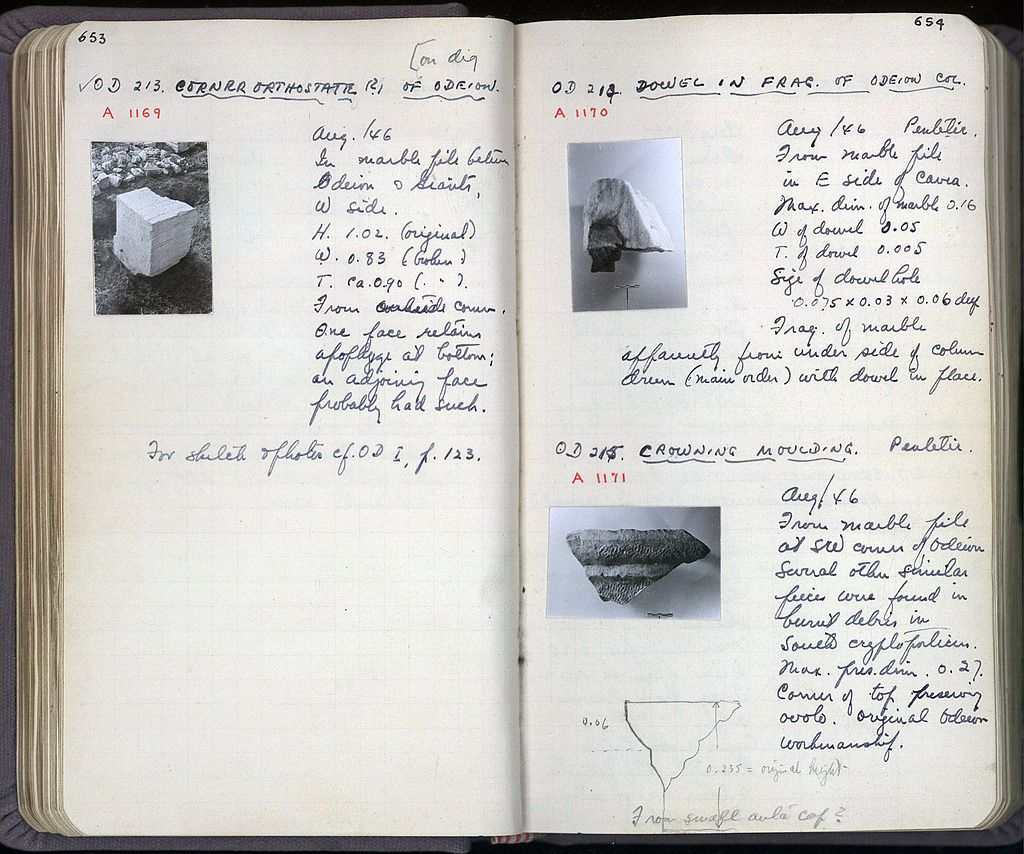 653
[on dig
✓OD 213. CORNER ORTHOSTATE OF ODEION.
A 1169
Aug. /46
In marble pile between
Odeion & Giants,
W side.
H. 1.02. (original)
W. 0.83 (broken)
T. ca 0.90 ( " ).
From outside corner.
One face retains
apophyge at bottom;
an adjoining face
probably had such.
For sketch & photos cf. OD I, p. 123.
654
OD 214. DOWEL IN FRAG. OF ODEION COL.
A 1170
Aug /46 Pentelic.
From marble pile
in E side of Cavea.
Max. dim. of marble 0.16
W of dowel 0.05
T. of dowel 0.005
Size of dowel hole
0.075 x 0.03 x 0.06 deep
Frag. of marble
apparently from under side of column
drum (main order) with dowel in place.
OD 215. CROWNING MOULDING. Pentelic.
A 1171
Aug/46
From marble pile
at SW corner of Odeion
Several other similar
pieces were found in
burnt debris in
South cryptoporticus.
Max. pres. dim. 0.27.
Corner of top preserving
ovolo. Original Odeion
workmanship.
0.06
0.235 = original height
From small anta cap?